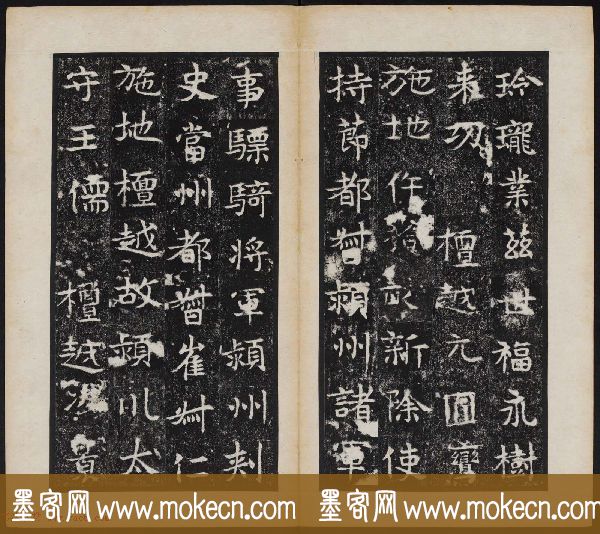 玲瓏業茲世福永樹
来刃 檀越元圓鸞
施地 新除使
持節都督潁州諸軍
事驃騎将軍潁州刺
史當州都督崔叔仁
施地檀越故潁川太
守王儒 檀越
墨客网 www.mokecn.com 墨客网 www.mokecn.com